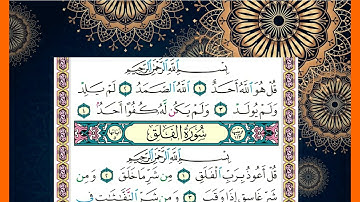 بِسْمِ ٱللَّهِ ٱلرَّحْمَٰنِ ٱلرَّحِيمِ
قُلْ هُوَ ٱللَّهُ أَحَدٌ ١ ٱللَّهُ ٱلصَّمَدُ ٢ لَمْ يَلِدْ
وَلَمْ يُولَدْ ٣ وَلَمْ يَكُن لَّهُۥ كُفُوًا أَحَدٌۢ ٤
سُورَةُ ٱلْفَلَقِ
بِسْمِ ٱللَّهِ ٱلرَّحْمَٰنِ ٱلرَّحِيمِ
قُلْ أَعُوذُ بِرَبِّ ٱلْفَلَقِ ١ مِن شَرِّ مَا خَلَقَ ٢ وَمِن
شَرِّ غَاسِقٍ إِذَا وَقَبَ ٣ وَمِن شَرِّ ٱلنَّفَّٰثَٰتِ فِى